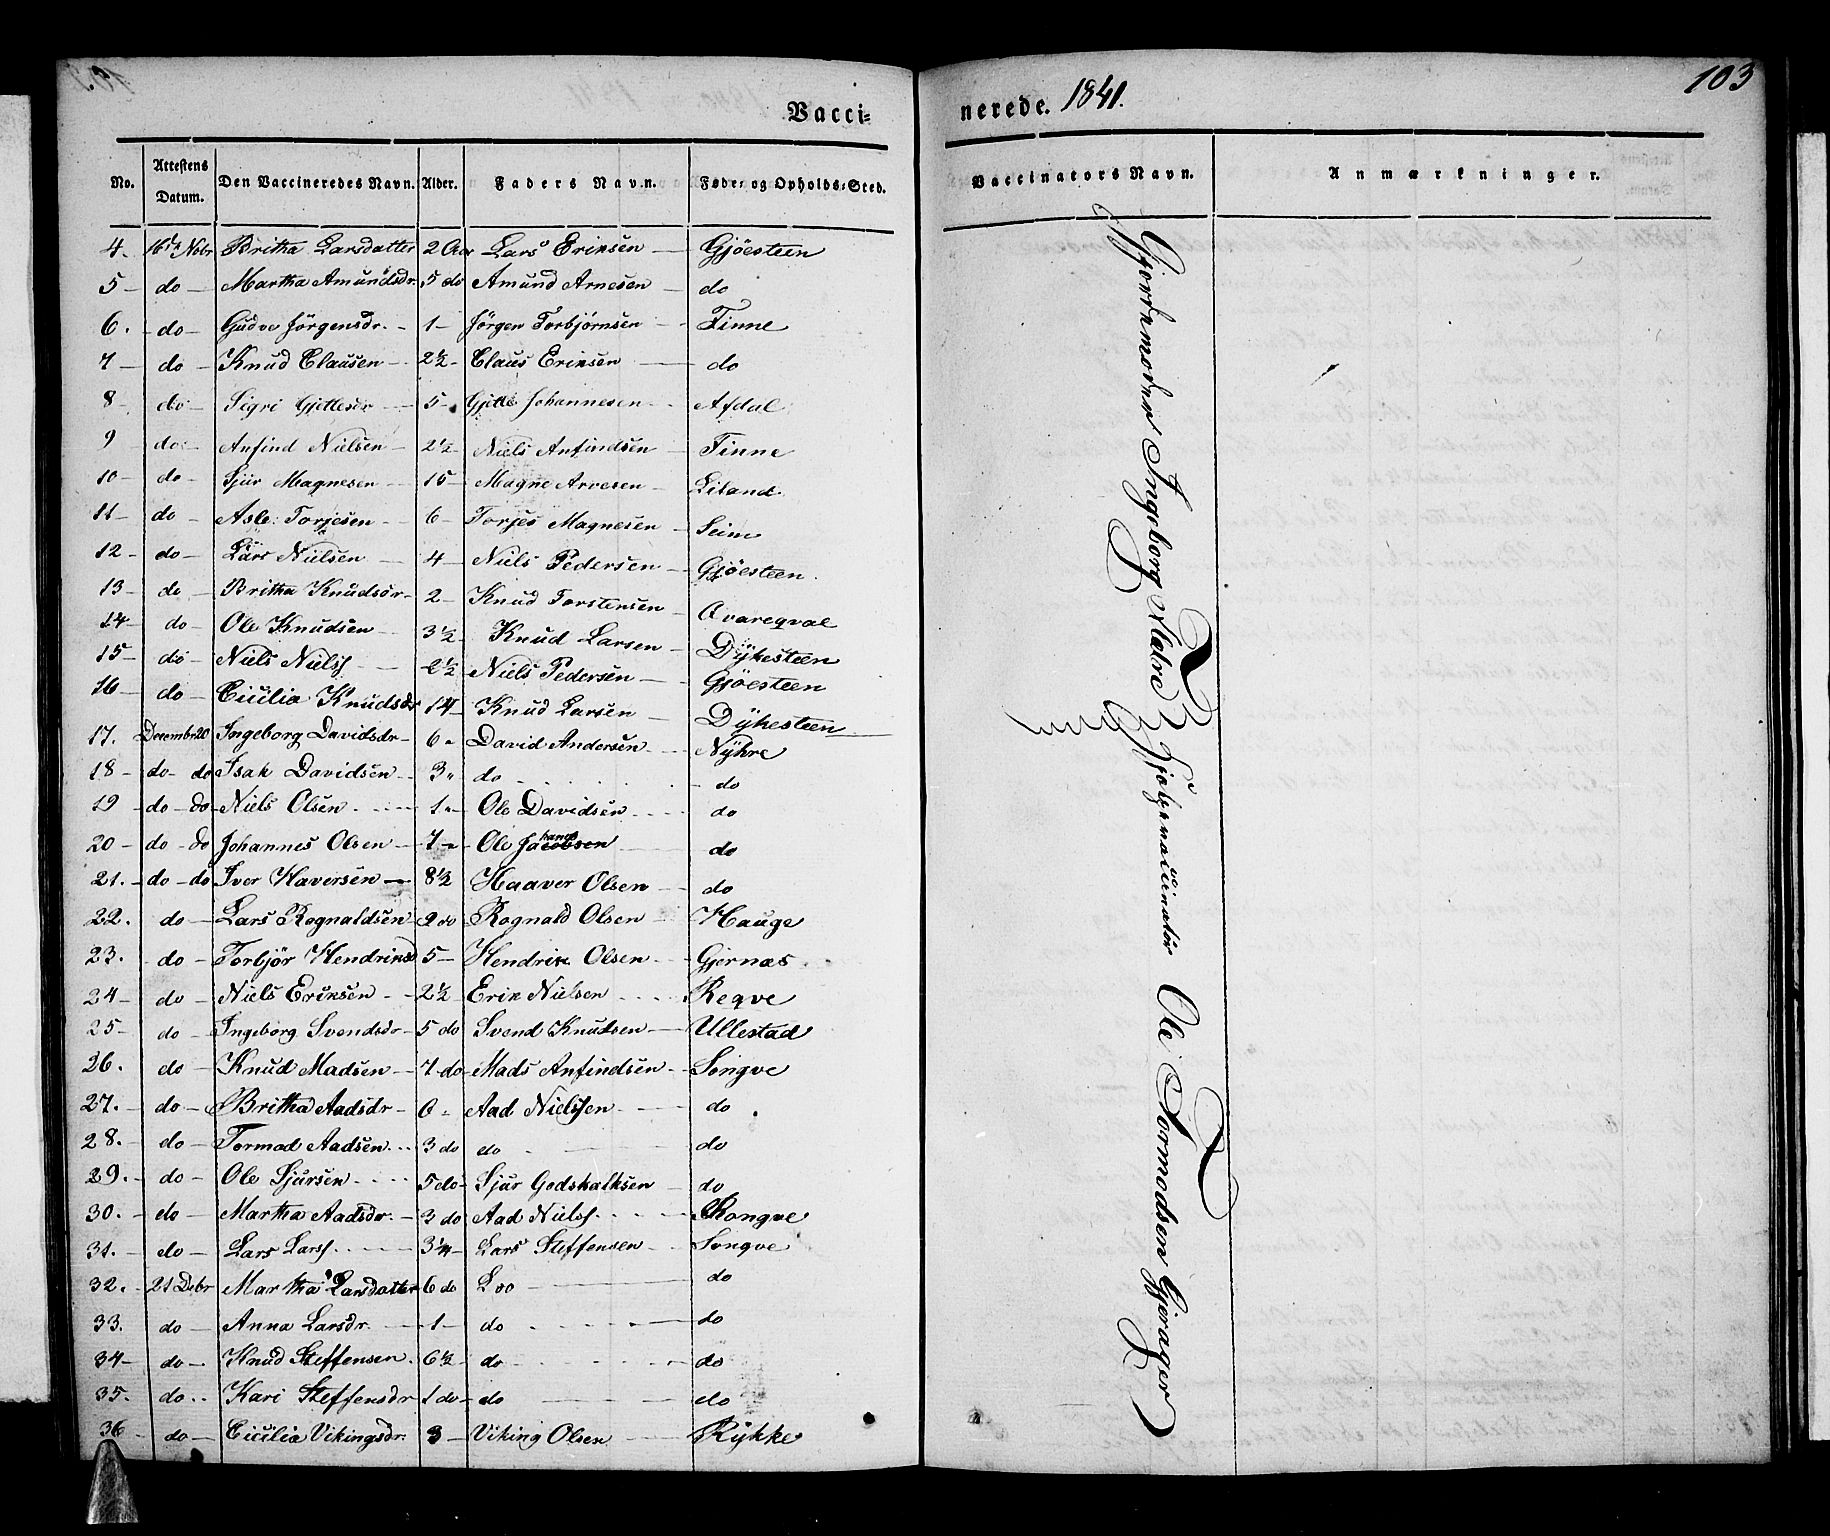 103
Vacci= nerede. 1841.
No. Attestens Datum. Den Vaccineredes Navn. Alder. Faders Navn. Føde= og Opholds=Sted. Vaccinators Navn. Anmærkninger.
4. 16de Nobr Britha Larsdatter 2 Aar Lars Eriksen — Gjöesteen
5 — do — Martha Amundsdr. 5 do Amund Arnesen — do
6. — do — Gudve Jörgensdr. — 1 — Jörgen Torbjörnsen — Finne
7 — do — Knud Clausen — 2½ — Claus Eriksen — do
8 — do — Sigri Gjettlesdr — 5 — Gjettle Johannesen — Afdal
9 — do — Anfind Nielsen — 2½ — Niels Anfindsen — Finne
10 — do — Sjur Magnesen — 15 — Magne Arvesen — Liland
11 — do — Asle Torjesen — 6 — Torjes Magnesen — Seim
12 — do — Lars Nielsen — 4 — Niels Pedersen — Gjöesteen.
13 — do — Britha Knudsdr — 2 — Knud Torstensen — Qvareqval
14 — do — Ole Knudsen — 3½ — Knud Larsen — Dÿkesteen
15 — do — Niels Nielsf — 2½ — Niels Pedersen — Gjöesteen
16 — do — Cicilia Knudsdr 14 — Knud Larsen — Dÿkesteen
17. Decembr 20 Ingeborg Davidsdr — 6 — David Andersen — Nÿhre
18 — do — do Isak Davidsen — 3 — do — do
19 — do — do Niels Olsen — 1 — Ole Davidsen — do
20 — do — do Johannes Olsen — 7 — Ole Johannes — do
21. — do — do Iver Haversen — 8½ Haaver Olsen — do
22. do — Lars Rognaldsen — 2 do Rognald Olsen — Hauge
23. — do — Torbjör Hendriksd 5 — Hendrik Olsen — Gjernæs
24 — do — Niels Eriksen — 2½ Erik Nielsen — Reqve
25 — do — Ingeborg Svendsdr — 5 do Svend Knudsen — Ullestad
26. do — Knud Madsen — 7 do — Mads Anfindsen — Songve
27. — do — Britha Aadsdr — 6 — Aad Nielssen — do
28. — do — Tormod Aadsen — 3 do do — do
29. — do — Ole Sjursen — 5 do — Sjur Godskalksen — do
30. — do — Martha Aadsdr. — 3 do Aad Nielsf. — Rongve
31. — do — Lars Larsf. — 3¼ — Lars Steffensen — Songve
32. — 21 Debr Martha Larsdatter 6 do — do
33. do — Anna Larsdr. — 1 — do — do
34 — do — Knud Steffensen. 6½ do — do
35. do — Kari Steffensdr 1 do — do — do
36 do — Cicilia Vikingsdr. 3 — Viking Olsen — Rÿkke
Gjortemoder Ingeborg
Hjelpevaccinatör Ole Tormodsen Gjerager